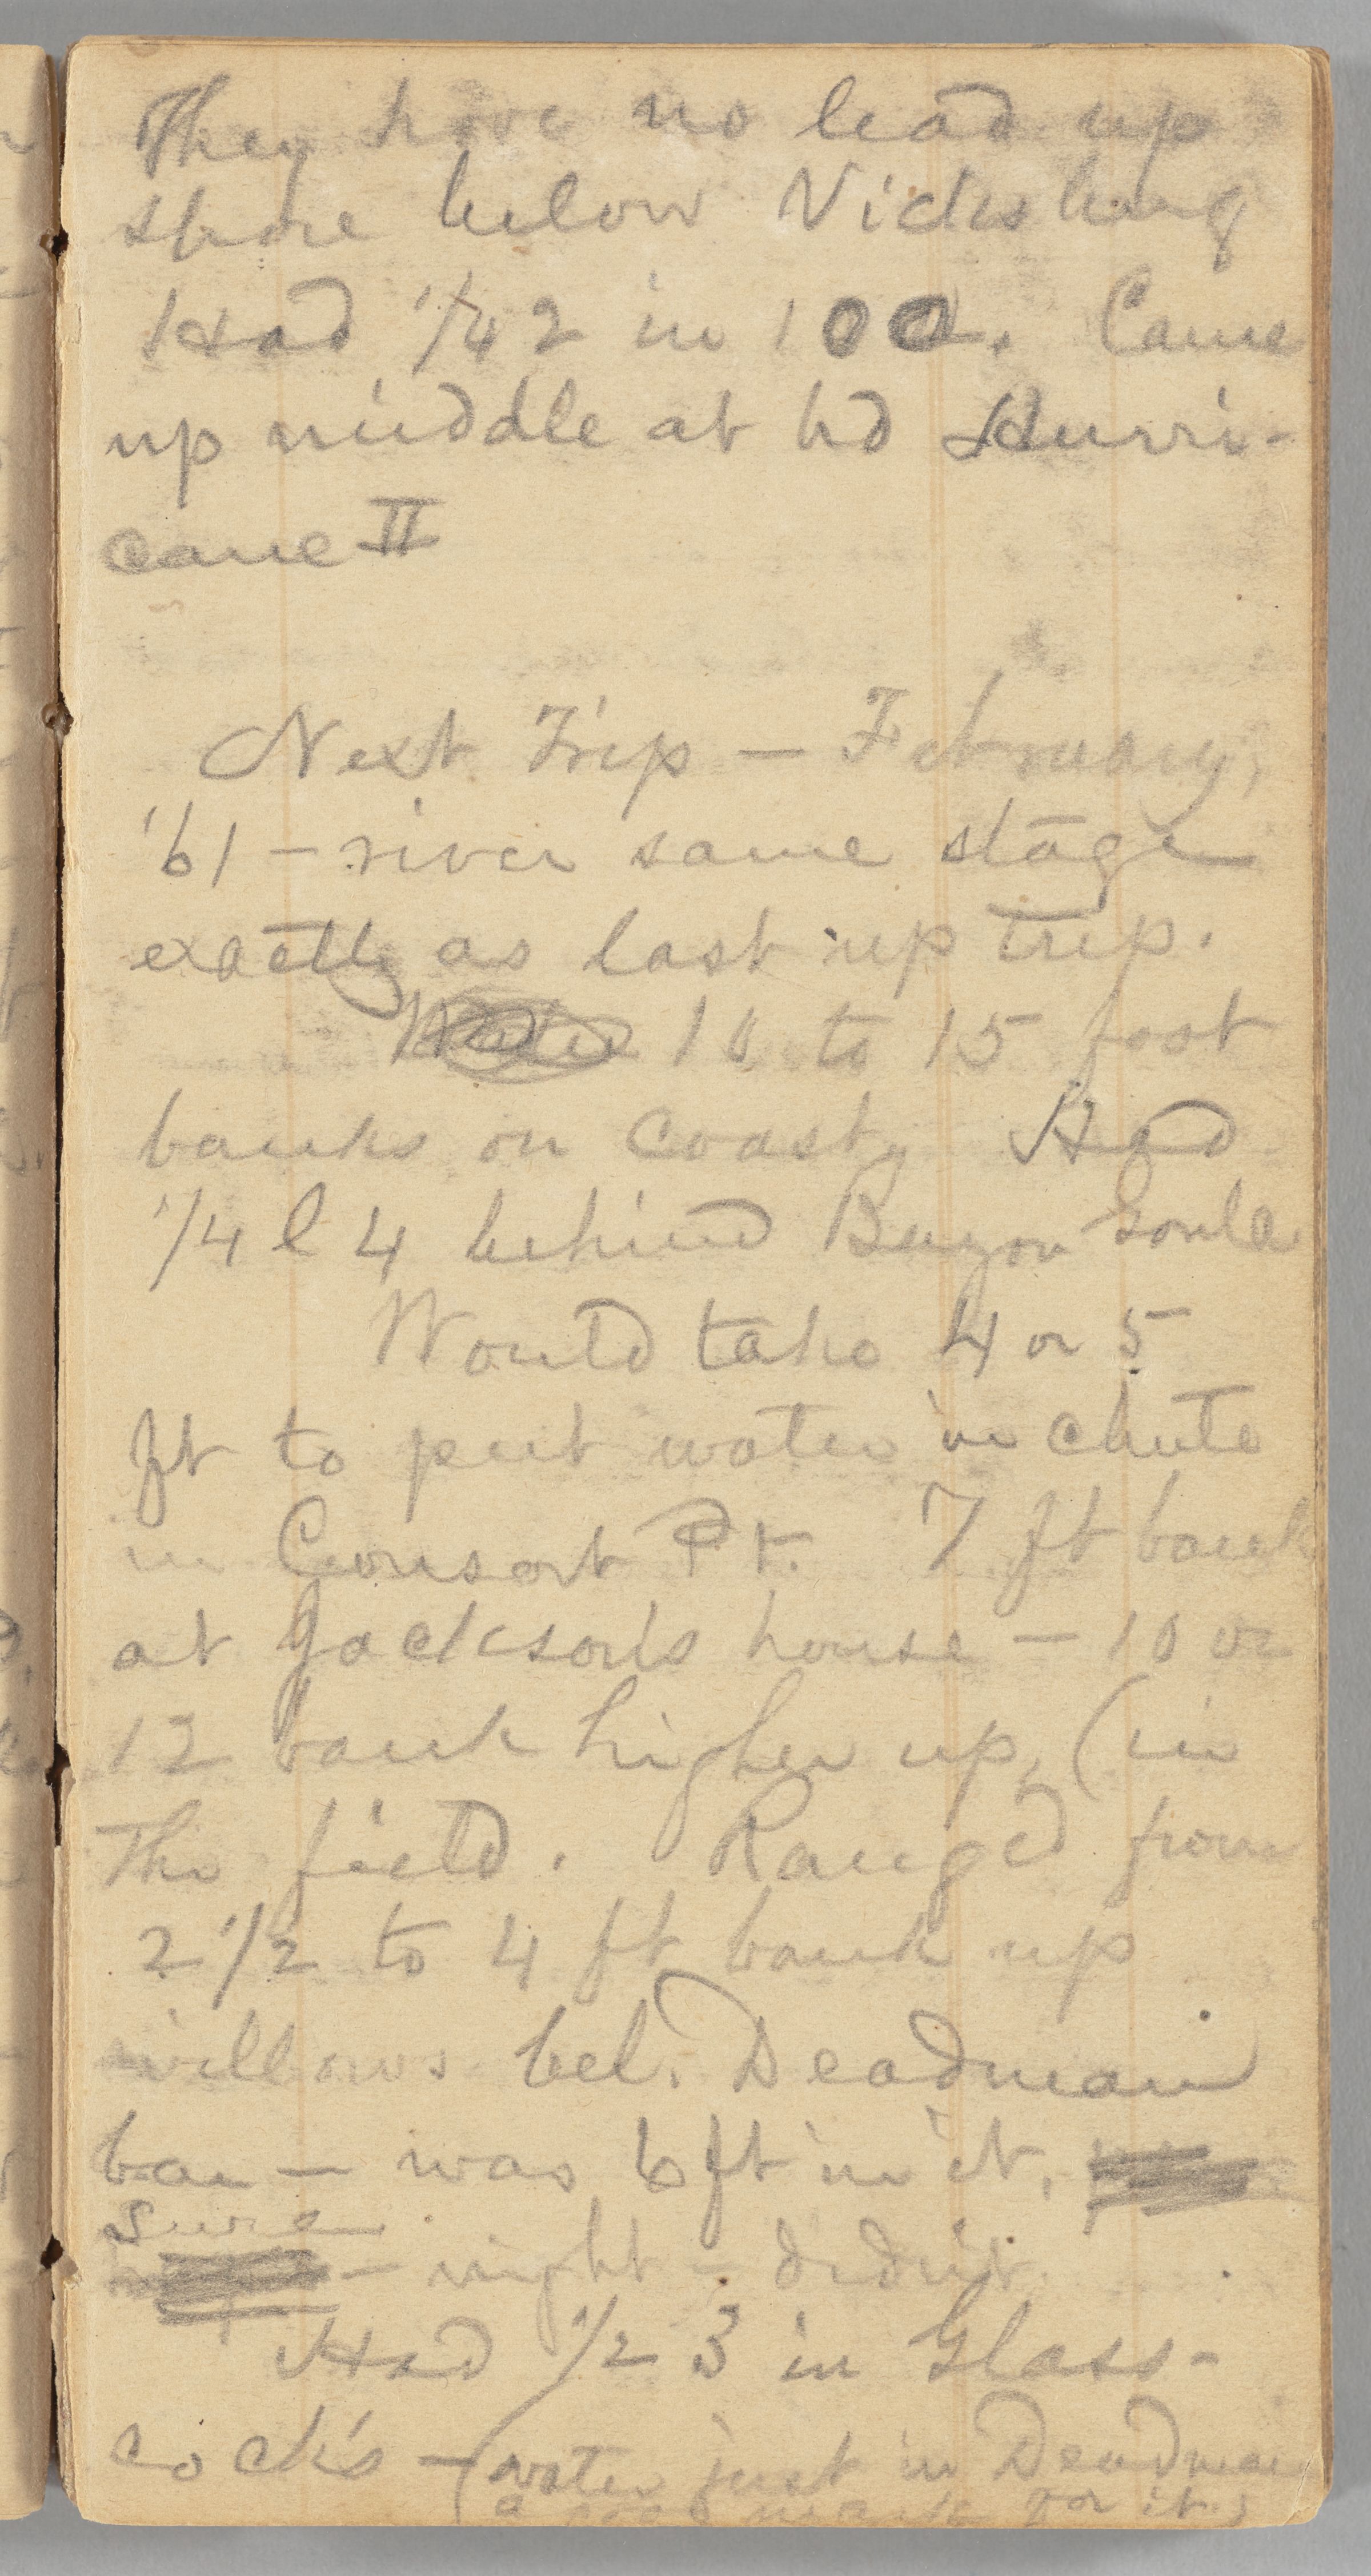 They have no lead up
shore below Vicksburg
Had 1/4 2 in 100. Came
up middle at hd Hurri-
cane II
Next Trip — February,
'61 — river same stage
exactly as last up trip.
10 to 15 foot
banks on coast, Had
1/4 l 4 behind Bayou Goula
Would take 4 or 5
ft to put water in chute
in Consort Pt. 7 ft bank
at Jackson's house — 10 or
12 bank higher up, (in
the field. Ranged from
2 1/2 to 4 ft bank up
willows bel. Deadman
bar — was 6 ft in it.
Sure
— night — didn't
Had 1/2 3 in Glass-
cock's — (water just in Deadman
a good mark for it.)